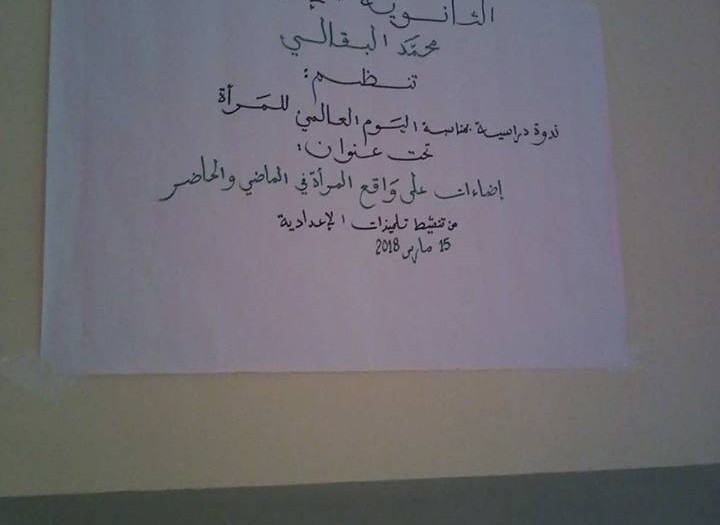 الثانوية
محمد البقالي
تنظم:
ندوة دراسية بمناسبة اليوم العالمي للمرأة
تحت عنوان:
إضاءات على واقع المرأة في الماضي والحاضر
من تنشيط تلميذات الإعدادية
15 مارس 2018